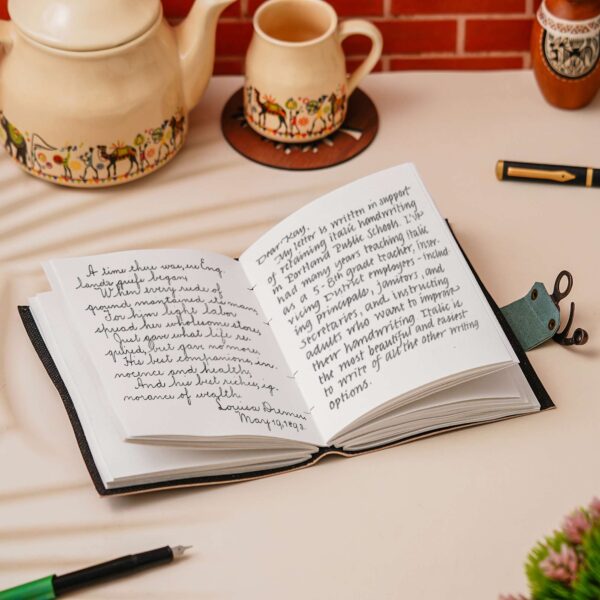 A time there was, ere Eng-
lands griefs began,
When every rude of
ground maintained its man;
For him light labor
spread her wholesome store,
Just gave what life re-
quired, but gave no more;
His best companions, in-
nocence and health;
And his best riches, ig-
norance of wealth.
Louisa
May 19, 1892.
Dear Kay,
My letter is written in support
of retaining italic handwriting
in Portland Public Schools. I've
had many years teaching italic
as a 5-8th grade teacher, inser-
vicing District employees - includ
ing principals, janitors, and
secretaries, and instructing
adults who want to improve
their handwriting. Italic is
the most beautiful and easiest
to write of all the other writing
options.